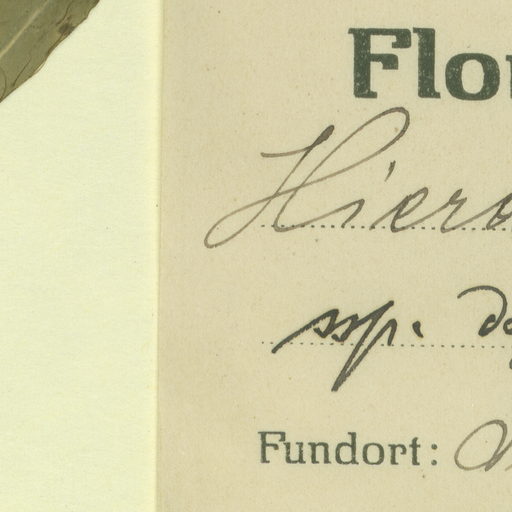 Flor
Hiera
ssp.
Fundort: